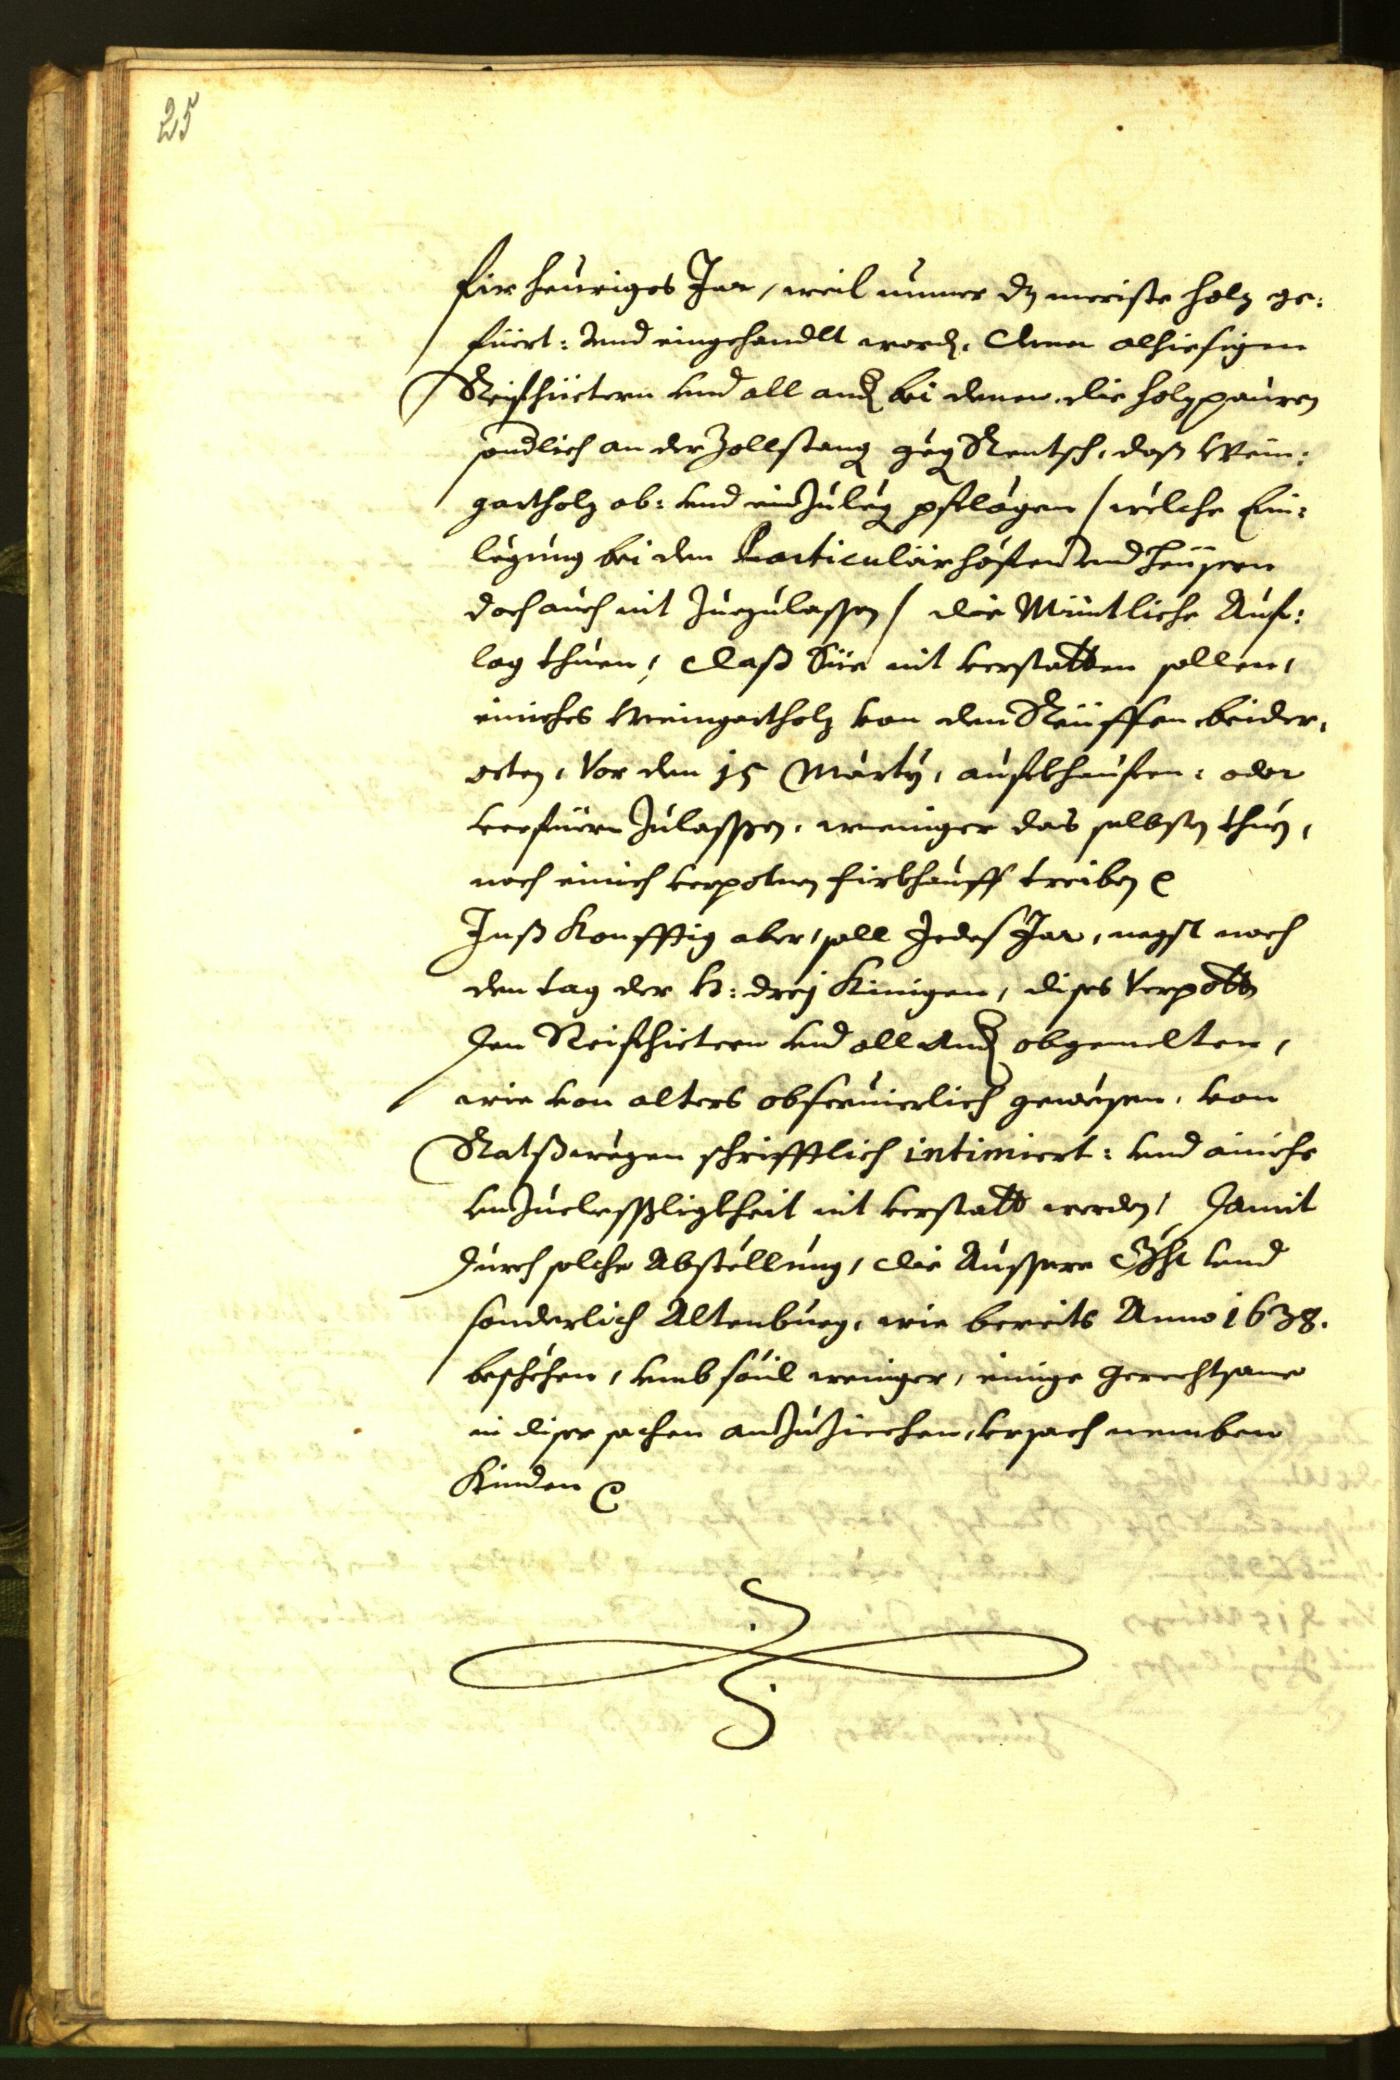 25
fir heuriges Jar, weil nunmer dz meiste holz ge:
füert: vnd eingehandlt word, denen alhiesigen
Reifhüetern vnd all and bei denen, die holzpauren
sondlich an der Zollstang geg Rentsch, daß Wein:
gartholz ab: vnd einzuleg pflägen / wélche Ein:
légung bei den Particularhöfen vnd heusern
doch auch nit Zuezulassen / die Mündtliche Auf:
lag thuen, daß Sÿe nit verstatten sollen,
einiches Weingartholz von den Rüffen beider,
orten, Vor den 15 Marty, aufkhaufen: oder
verfüern Zulassen, weniger das selbsten thuen,
noch einich verpotnen firkhauff treiben
Inß Konfftig aber, soll Jedes Jar, negst nach
den tag der H: dreÿ Künigen, dises Verpott
den Reifhietern vnd all and obgemelten,
wie von alters obseruierlich gewesen, von
Ratßwégen schrifftlich intimiert: vnd einiche
vnzuelesßligkheit nit verstatt werden, damit
durch solche Abstéllung, die Aussere vnd
sonderlich Altenburg, wie bereits Anno 1638.
beschéhen, vmb souil weniger, einige Gerechtsame
in diser sachen anzuziechen, vrsach nemben
Kinden